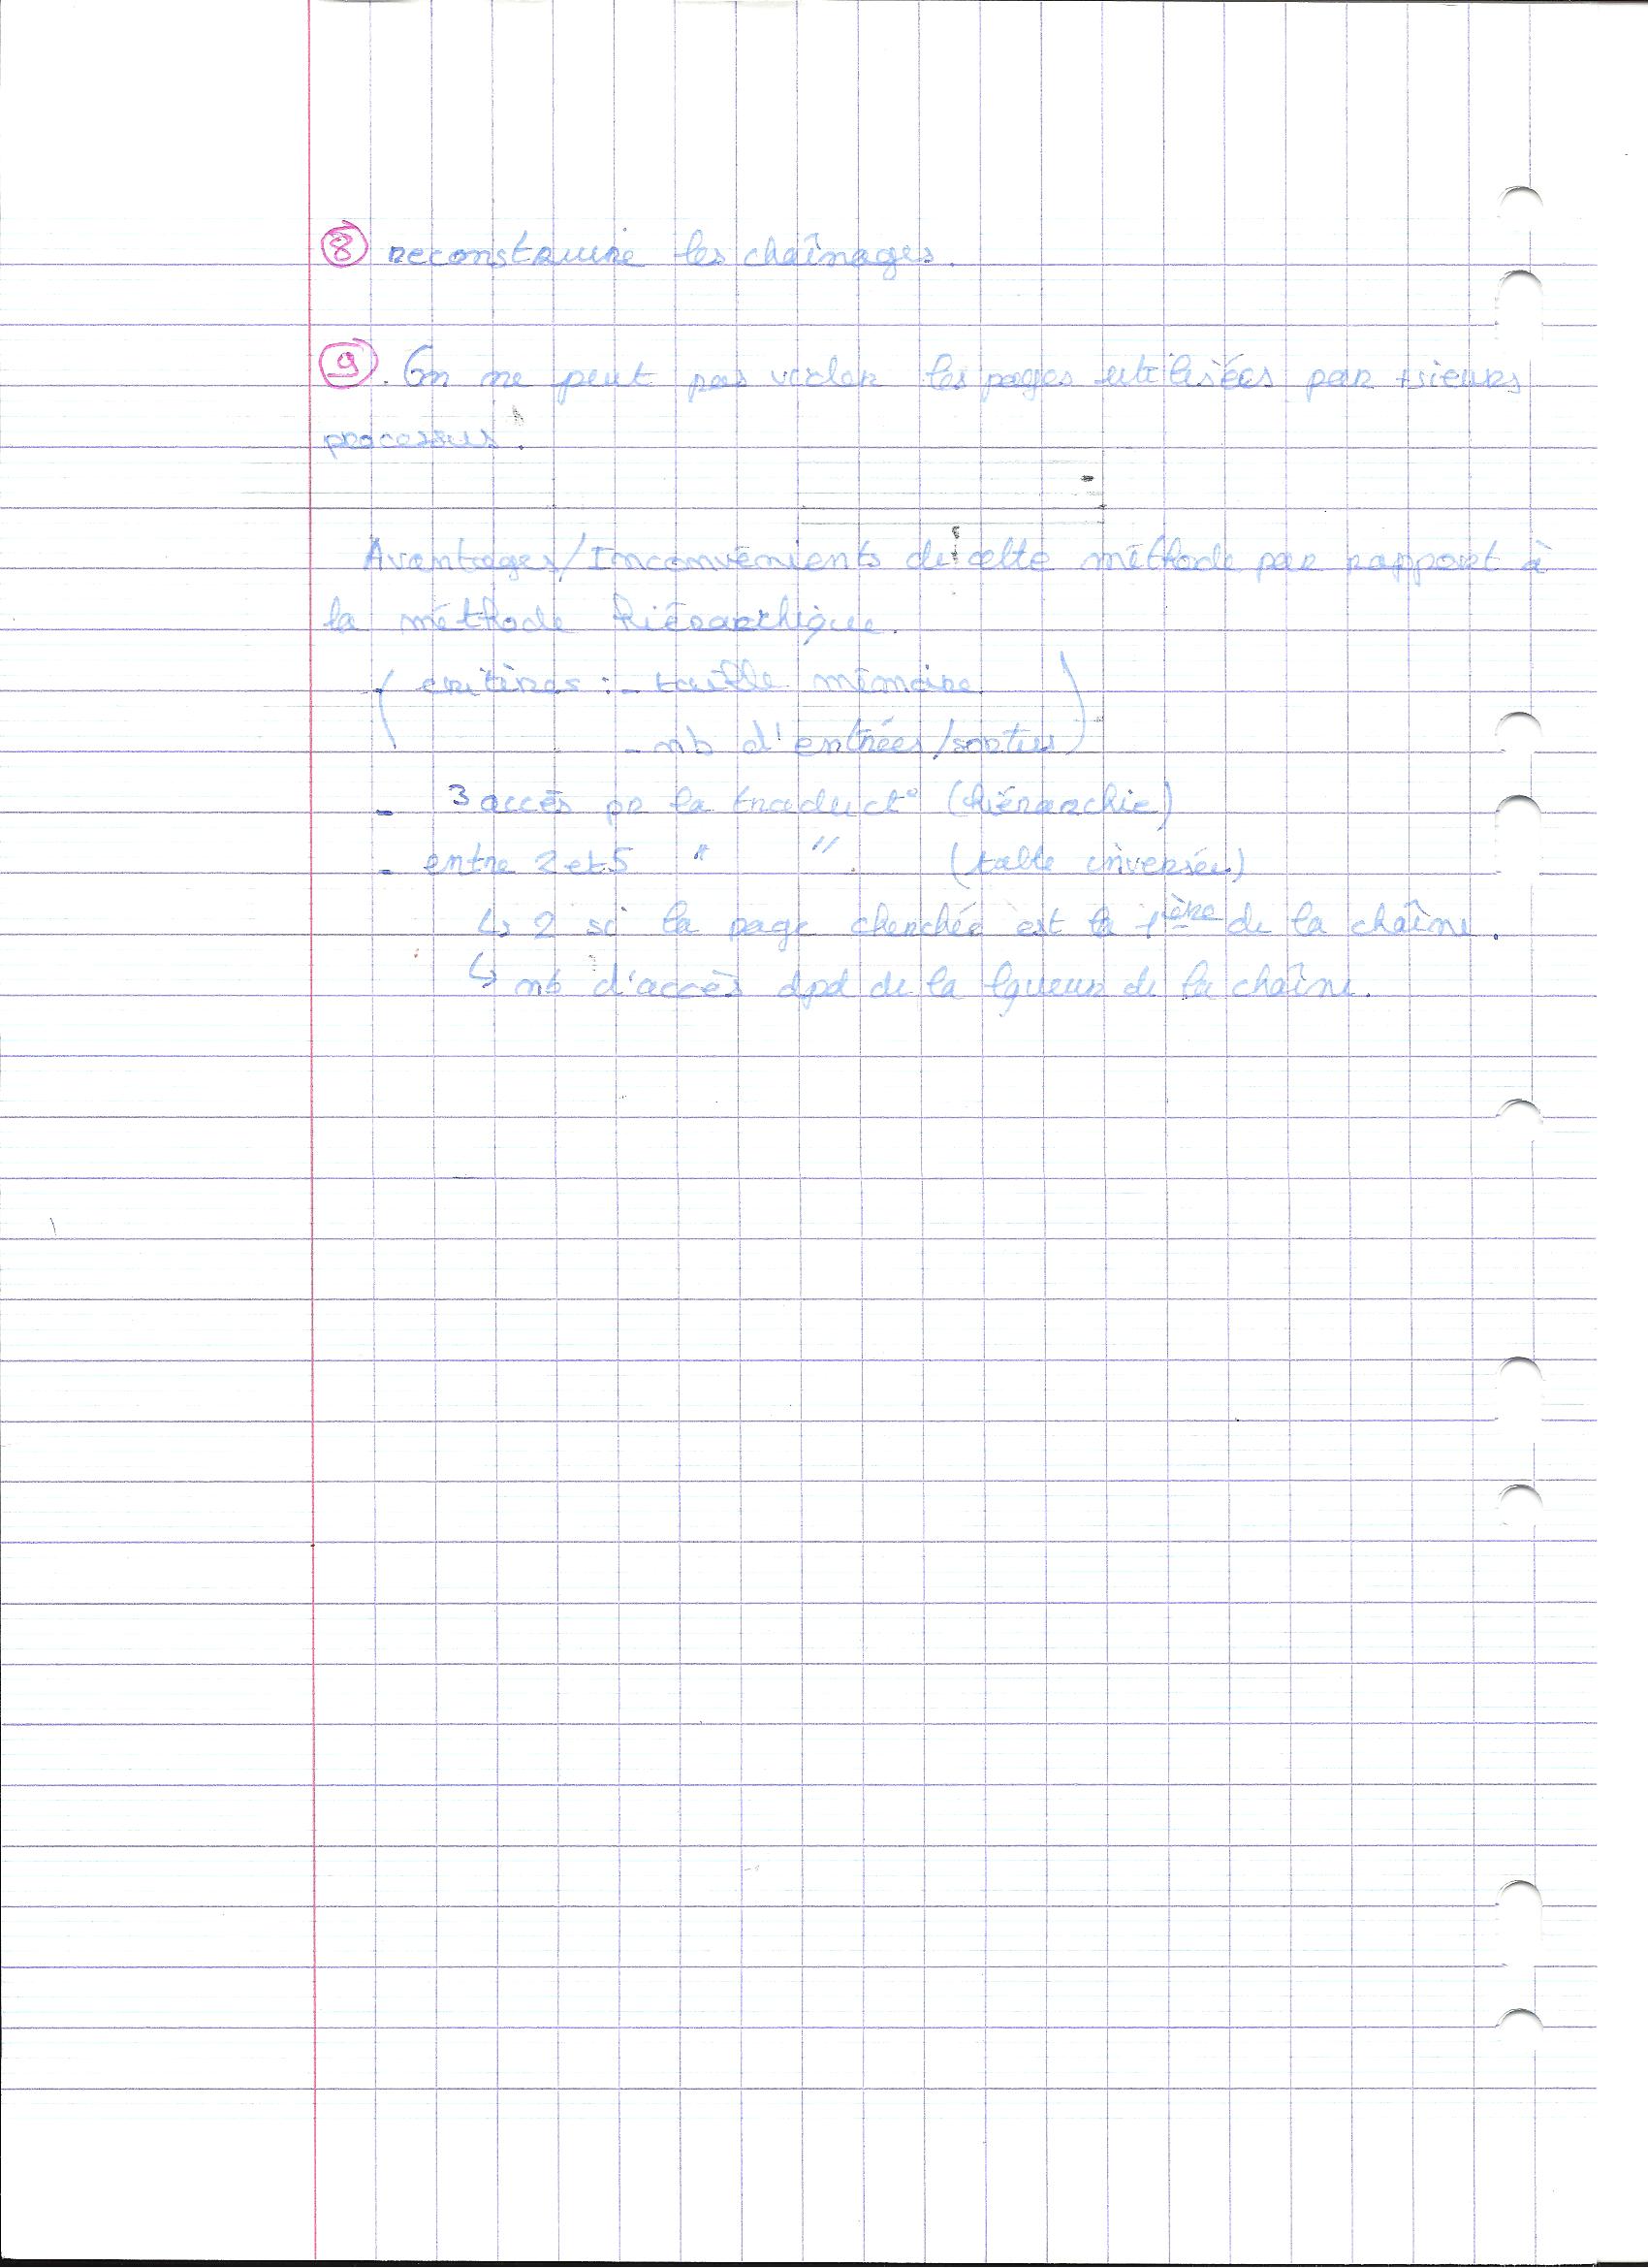 8 reconstruire les chaînages.
9. On ne peut pas vider les pages utilisées par +sieurs
processus.
Avantages/Inconvénients de cette méthode par rapport à
la méthode hiérarchique.
( critères : - taille mémoire
- nb d'entrées/sorties )
- 3 accès pr la traduct° (hiérarchie)
- entre 2 et 5 " " (table inversée)
↳ 2 si la page cherchée est la 1ère de la chaîne.
↳ nb d'accès dpd de la lgueur de la chaîne.